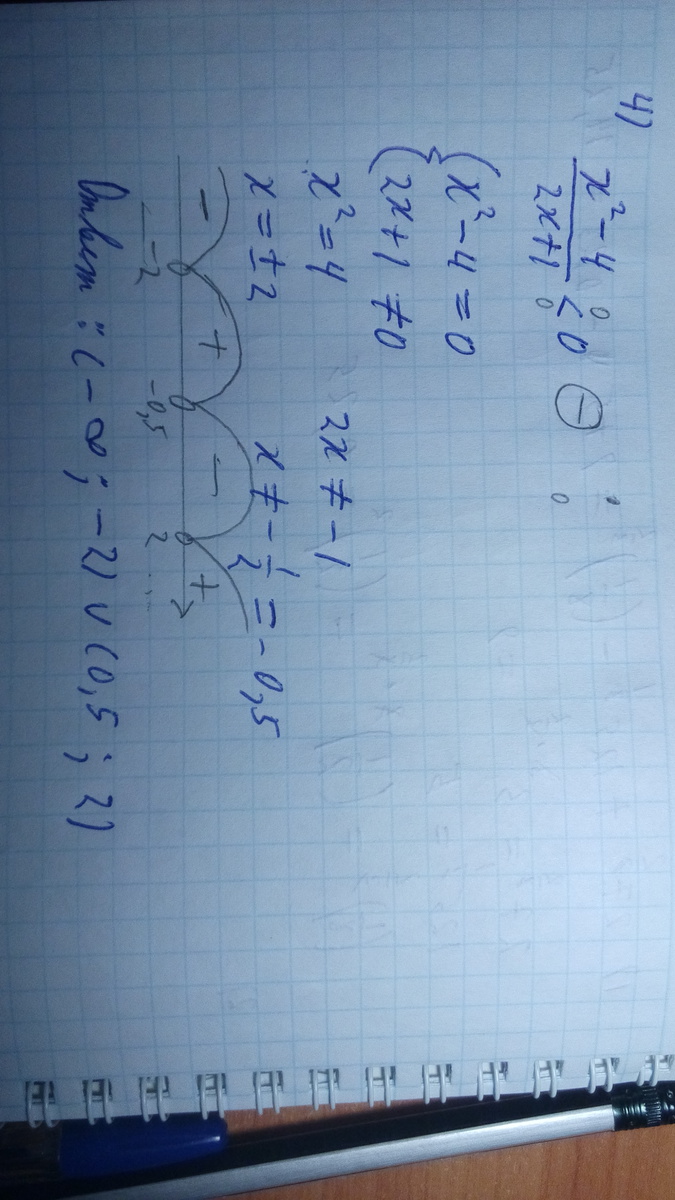 4)
x² - 4
2x + 1 < 0 ⊖
{ x² - 4 = 0
2x + 1 ≠ 0
x² = 4 2x ≠ -1
x = ±2 x ≠ - 1/2 = -0,5
- + - +
-2 -0,5 2
Ответ: (-∞; -2) ∪ (0,5; 2)